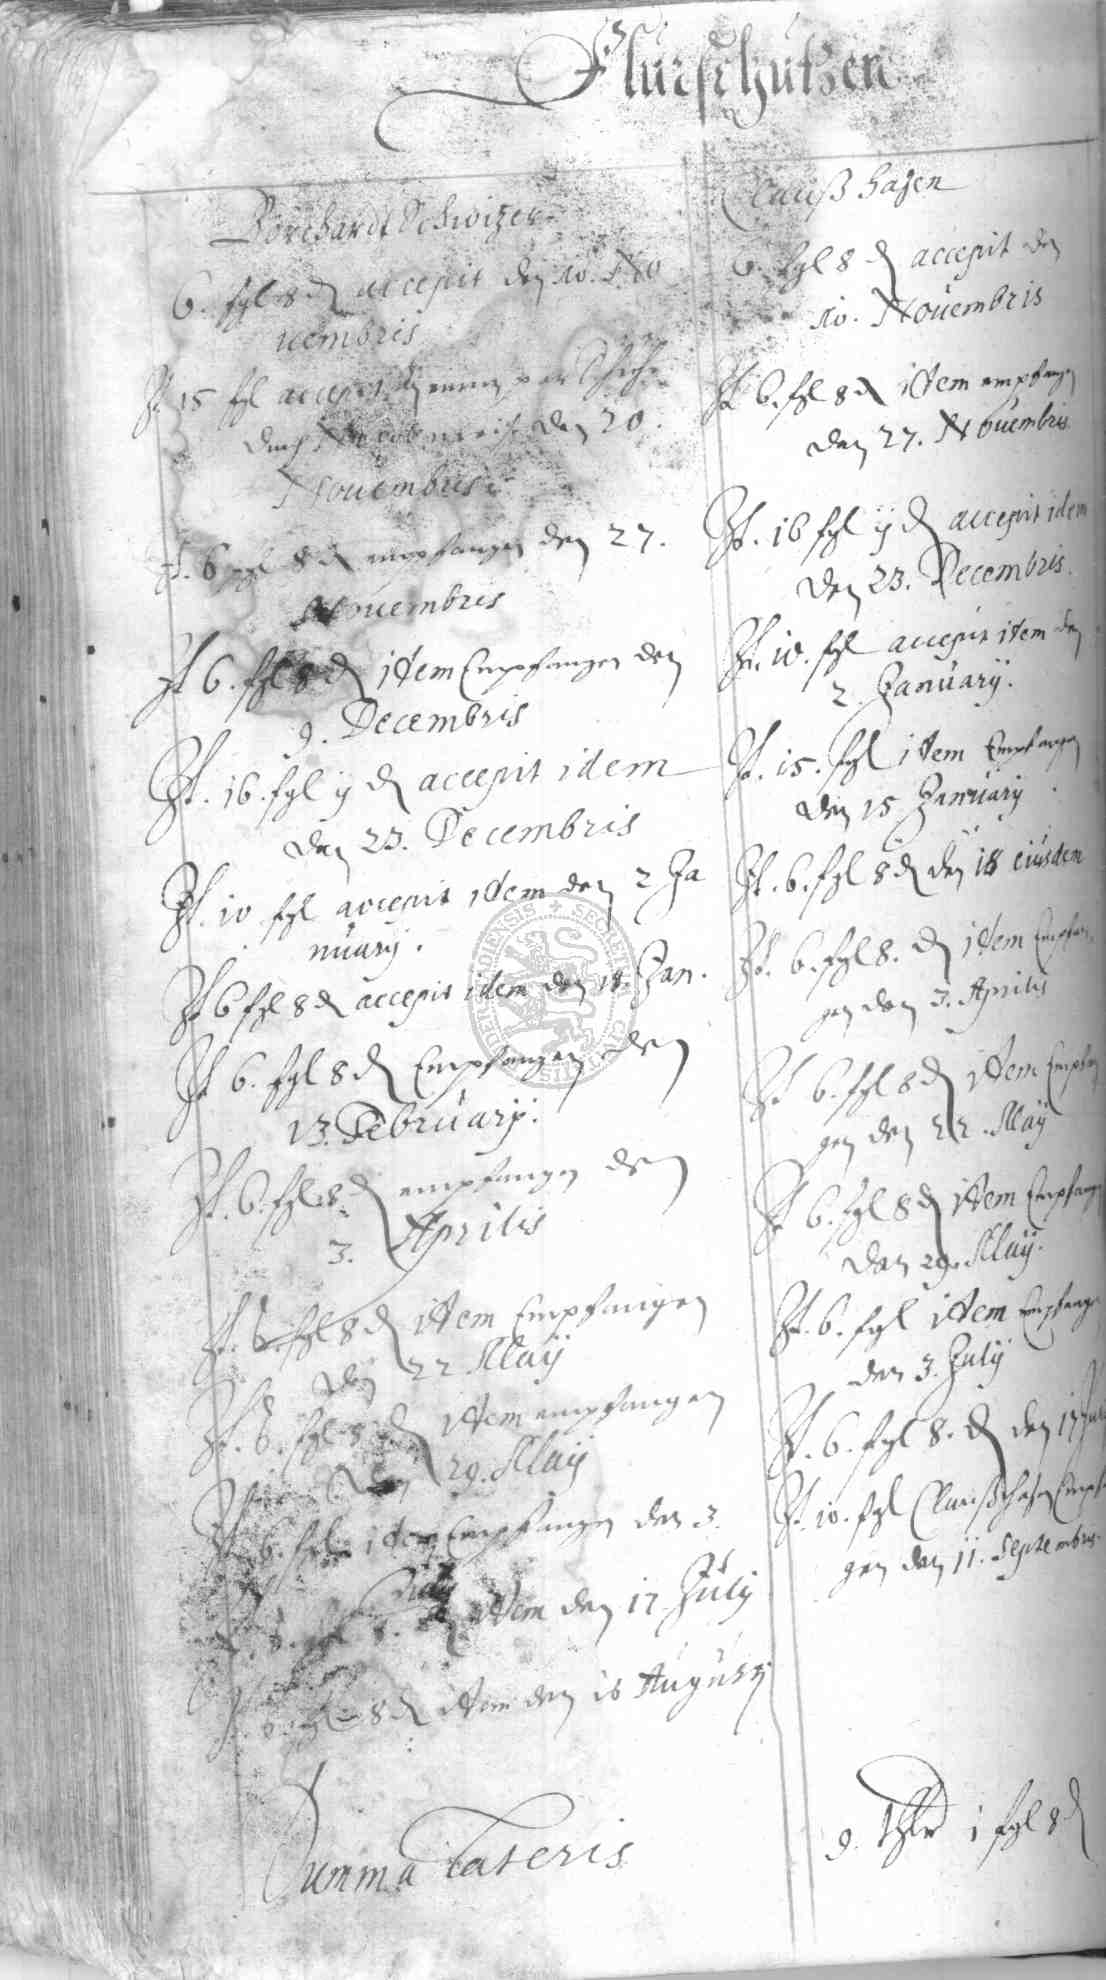 Flurschützen
Borchardt Schwizer
6. fgl 8 ₰ accepit den 10. No
uembris
It 15 fgl accepit
durch den 20.
Nouembris
It. 6 fgl 8 ₰ empfangen den 27.
Nouembris
It 6. fgl 8 ₰ item Empfangen den
9. Decembris
It. 16. fgl ij ₰ accepit idem
den 23. Decembris
It. 10 fgl accepit item den 2 Ja
nuarij.
It 6 fgl 8 ₰ accepit idem den 18. Jan.
It 6. fgl 8 ₰ Empfangen den
13. Februarij.
It. 6. fgl. 8 ₰ empfangen den
3. Aprilis
It. 6. fgl 8 ₰ item Empfangen
den 22. Maij
It. 6. fgl 8 ₰ item empfangen
den 29. Maij
It 6. fgl item Empfangen den 3.
July
8. ₰ item den 17 July
8 ₰ item den 18 Augusti
Summa Lateris
Clauß Hasen
6. fgl 8 ₰ accepit den
10. Nouembris
It 6. fgl 8 ₰ item empfangen
den 27. Nouembris
It. 16 fgl ij ₰ accepit idem
den 23. Decembris.
It. 10. fgl accepit item den
2. Januarij.
It. 15. fgl item Empfangen
den 15 Januarij
It. 6. fgl 8 ₰ den 18 eiusdem
It. 6. fgl 8. ₰ item Empfan
gen den 3. Aprilis
It 6. fgl 8 ₰ item Empfan
gen den 22. Maij
It 6. fgl 8 ₰ item Empfangen
den 29. Maij.
It. 6. fgl item empfangen
den 3. Julij
It. 6. fgl 8. ₰ den 17 Juli
It. 10. fgl Clauß Hasen Empfan
gen den 11. Septembris.
9. thlr 1 fgl 8 ₰
SECRETUM CIVITATIS